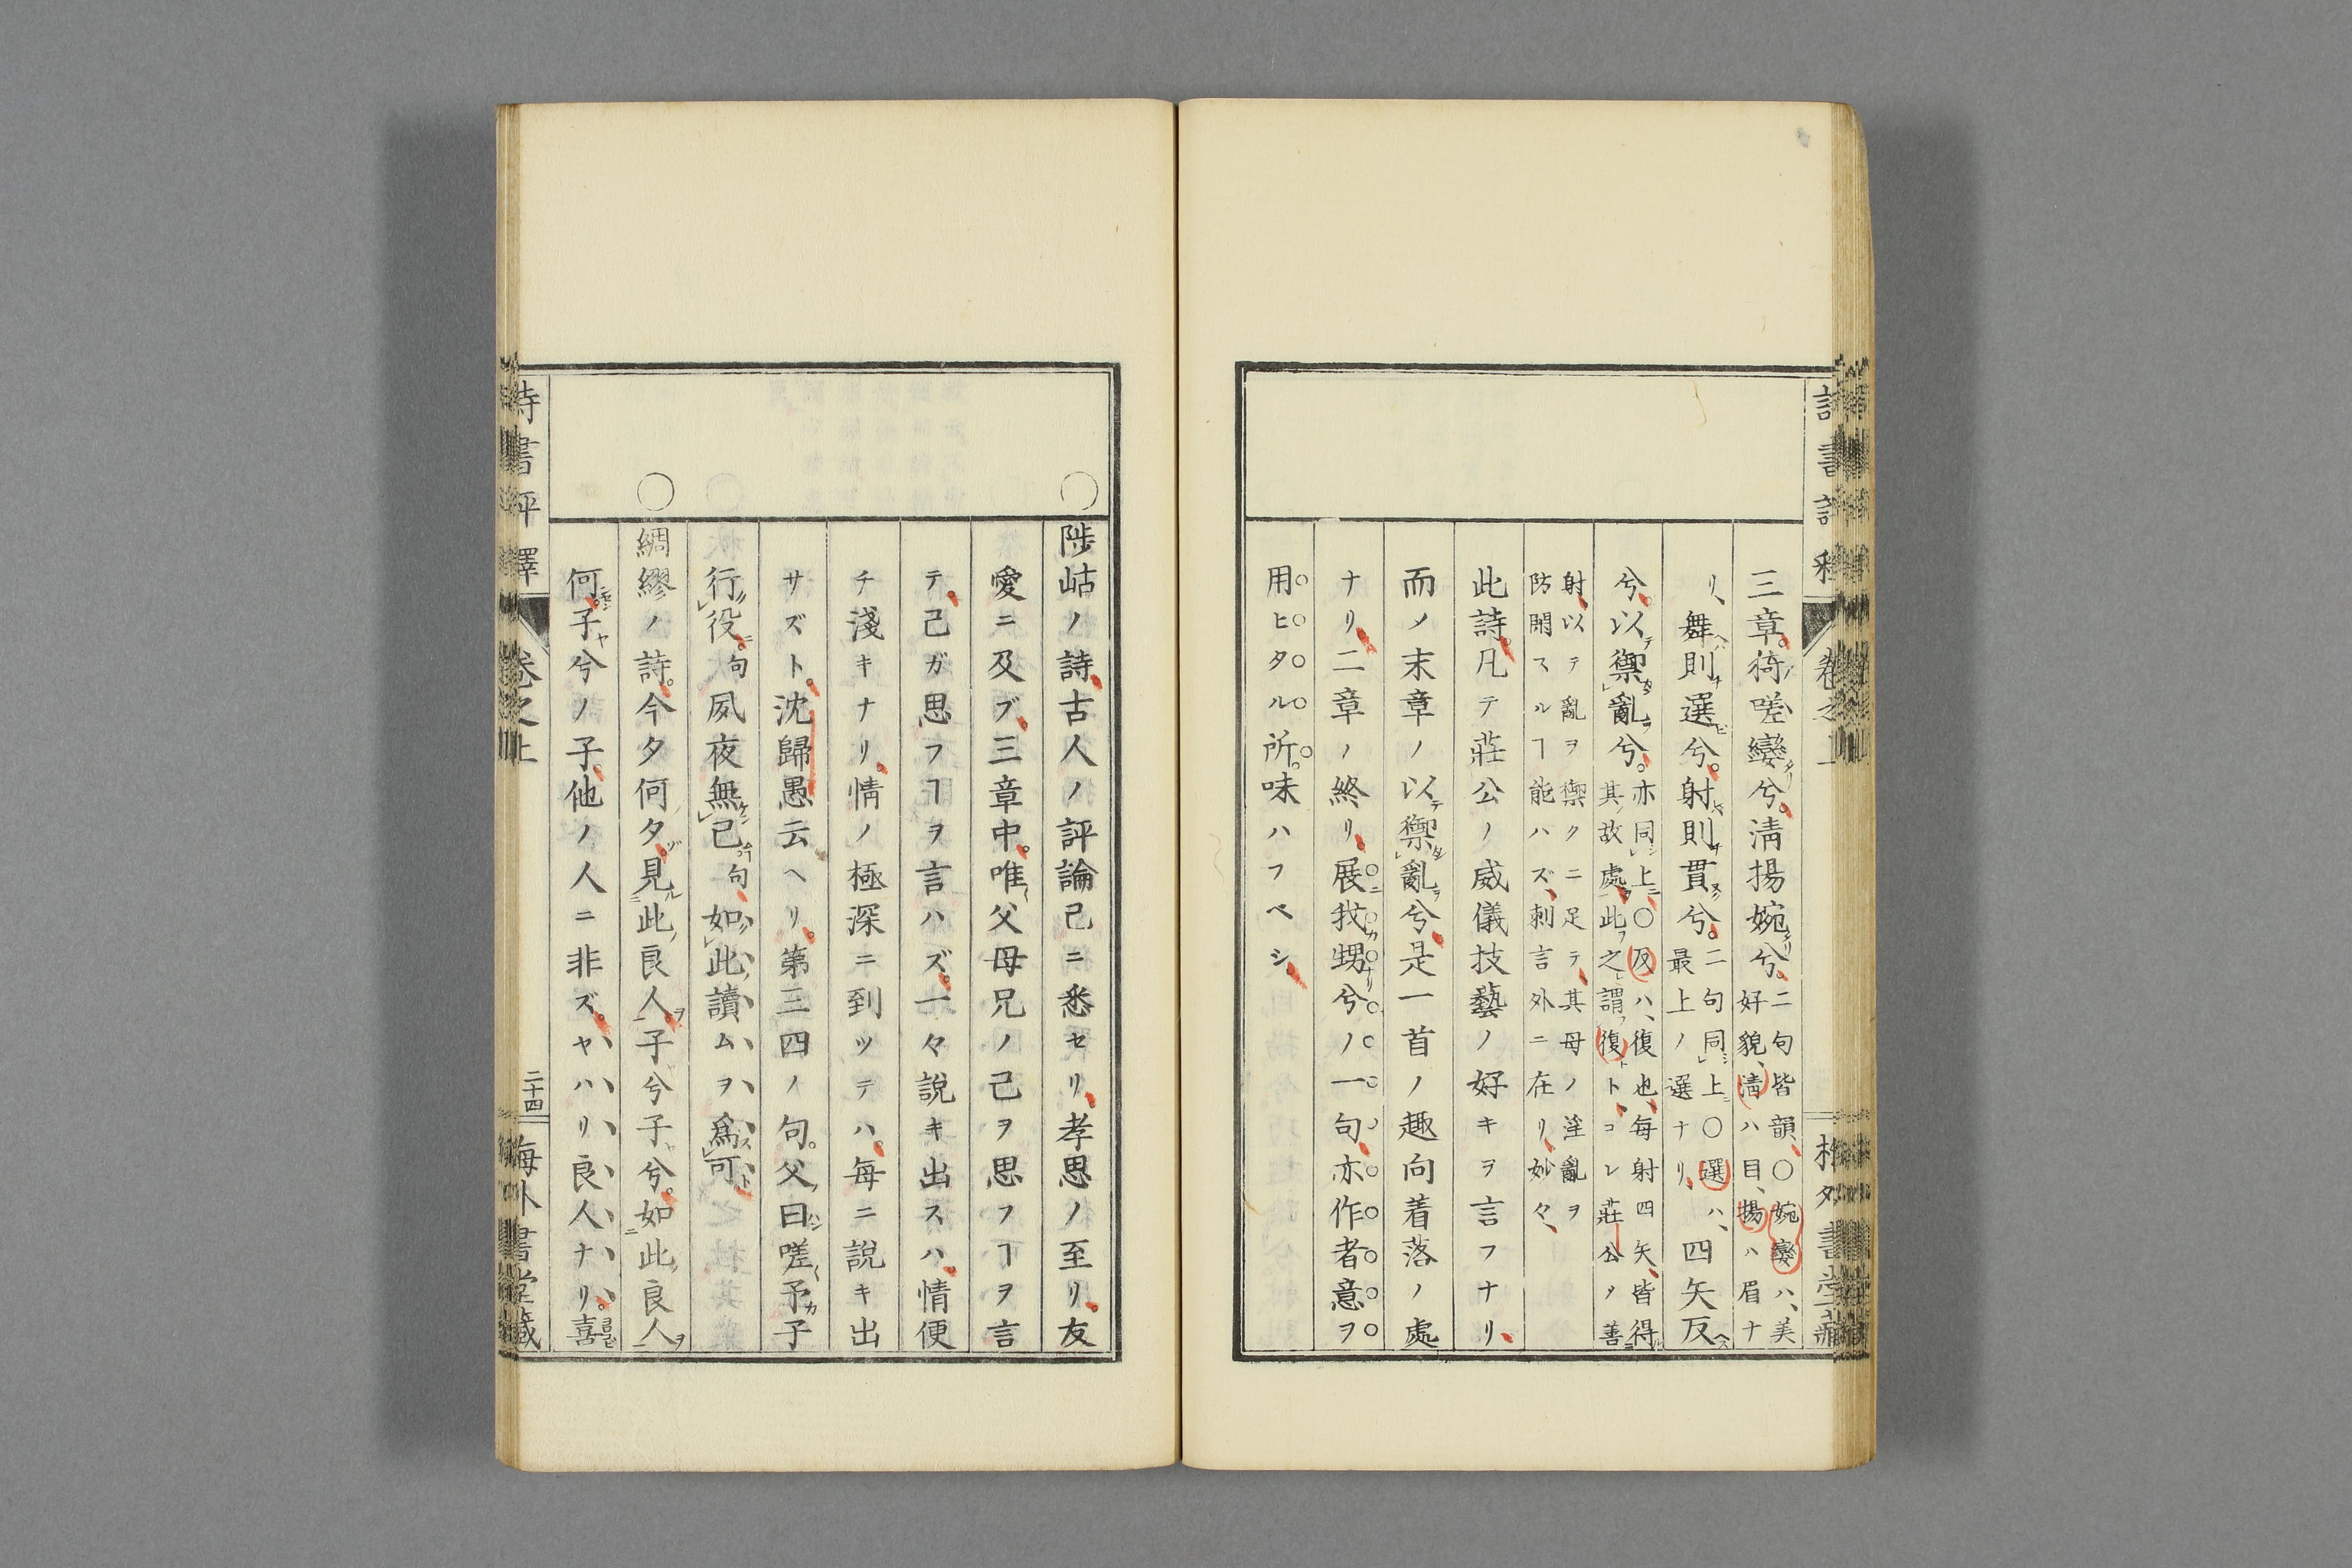 三章。猗嗟孌兮。淸揚婉兮。二句皆韻、〇婉孌ハ、美
好貌、淸ハ目、揚ハ眉ナ
リ、舞則選兮。射則貫兮。二句同上〇選ハ、
最上ノ選ナリ、四矢反
兮。以禦亂兮。亦同上〇反ハ、復也、每射四矢、皆得
其故處、此之謂復ト、コレ莊公ノ善
射、以テ亂ヲ禦クニ足テ、其母ノ淫亂ヲ
防閑スルヿ能ハズ、刺言外ニ在リ、妙々、
此詩。凡テ莊公ノ威儀技藝ノ好キヲ言フナリ、
而ノ末章ノ以禦亂兮。是一首ノ趣向着落ノ處
ナリ、二章ノ終リ、展我甥兮ノ一句、亦作者意ヲ
用ヒタル所。味ハフベシ、
陟岵ノ詩、古人ノ評論己ニ悉セリ、孝思ノ至リ。友
愛ニ及ブ。三章中。唯父母兄ノ己ヲ思フヿヲ言
テ。己ガ思フヿヲ言ハズ。一々說キ出スハ。情便
チ淺キナリ。情ノ極深ニ到ツテハ。每ニ說キ出
サズト。沈歸愚云ヘリ。第三四ノ句。父曰嗟予子
行役。句夙夜無已句、如此讀ムヲ爲可。
綢繆ノ詩。今夕何夕。見此良人。子兮子兮。如此良人
何。子兮ノ子、他ノ人ニ非ズ。ヤハリ良人ナリ。喜
詩書評釋 卷之上 二十四 梅外書堂藏